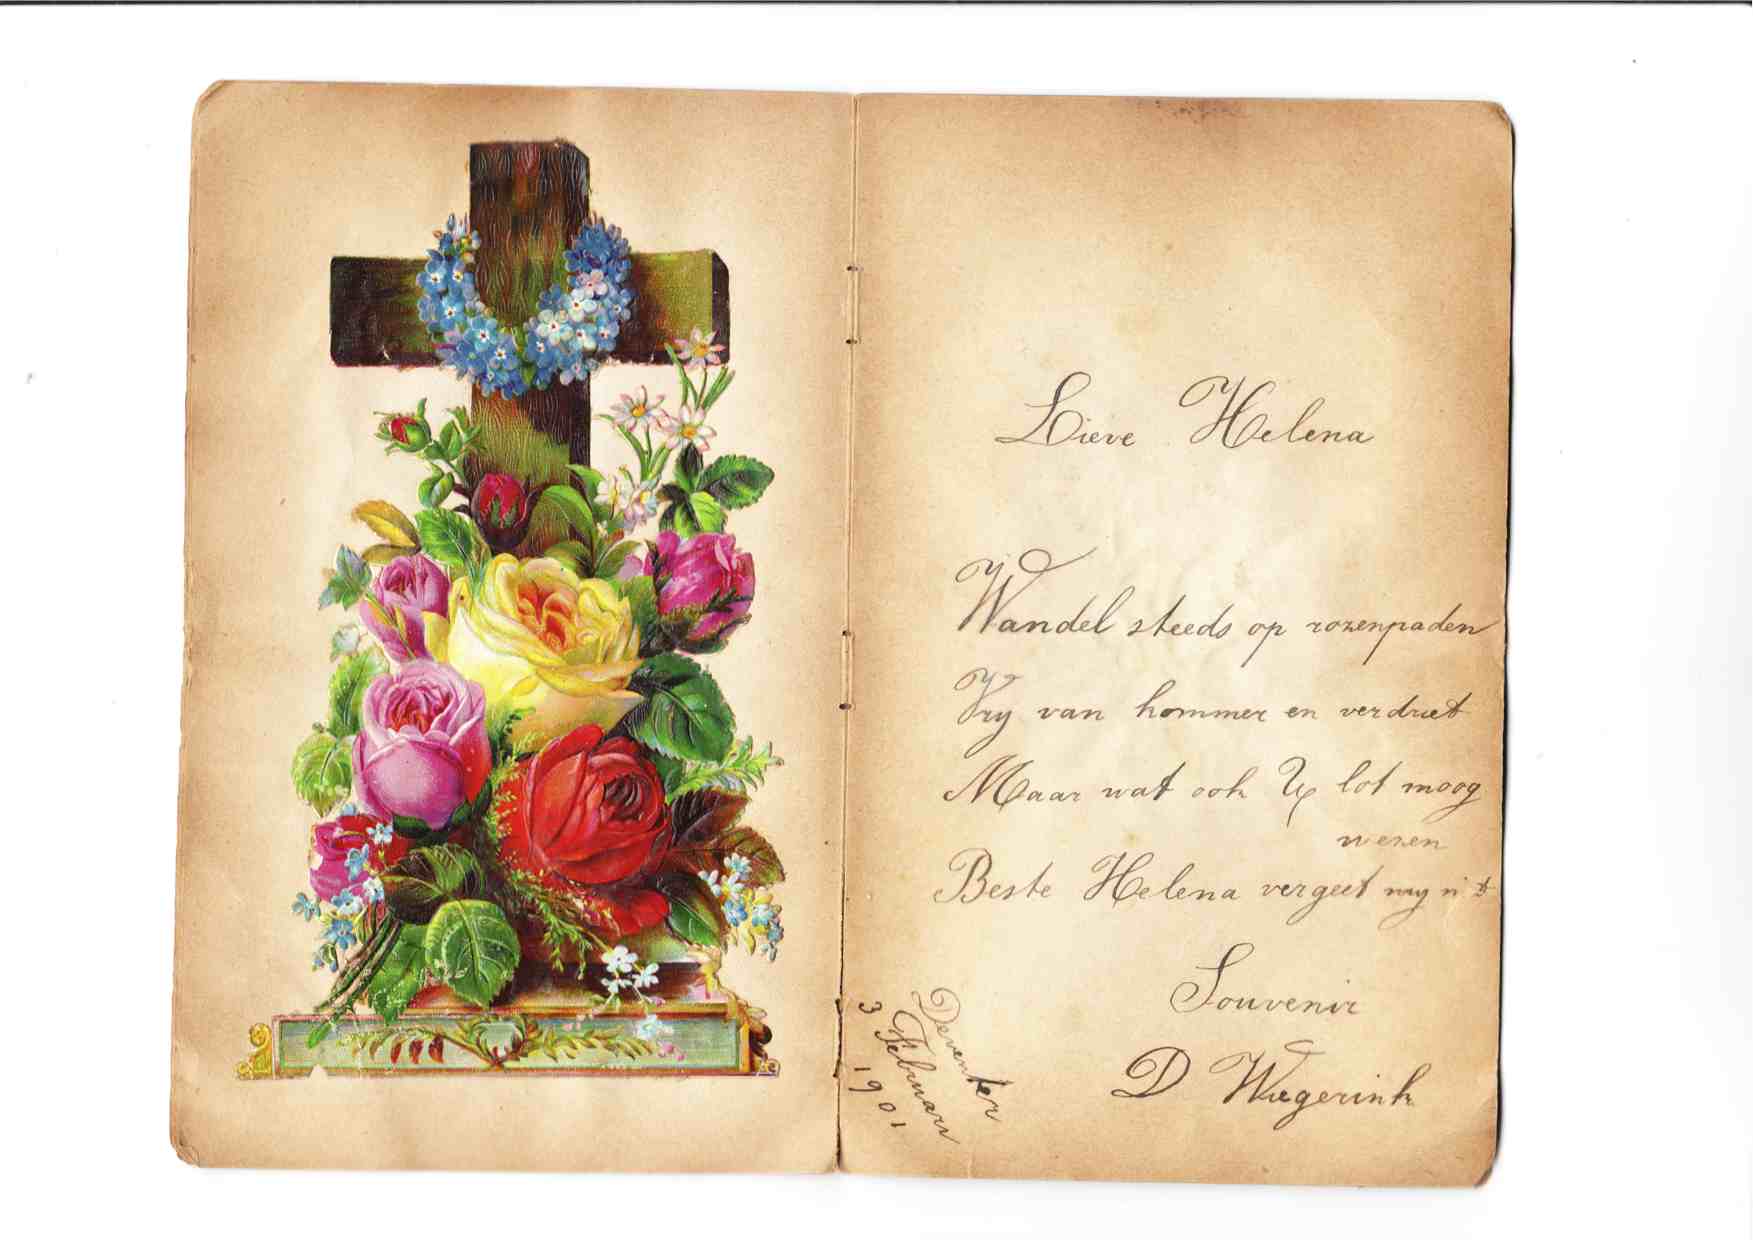 Lieve Helena
Wandel steeds op rozenpaden
Vry van kommer en verdriet
Maar wat ook U lot moog
wezen
Beste Helena vergeet my nit
Souvenir
D Wiegerink
Deventer
3 Februari
1901